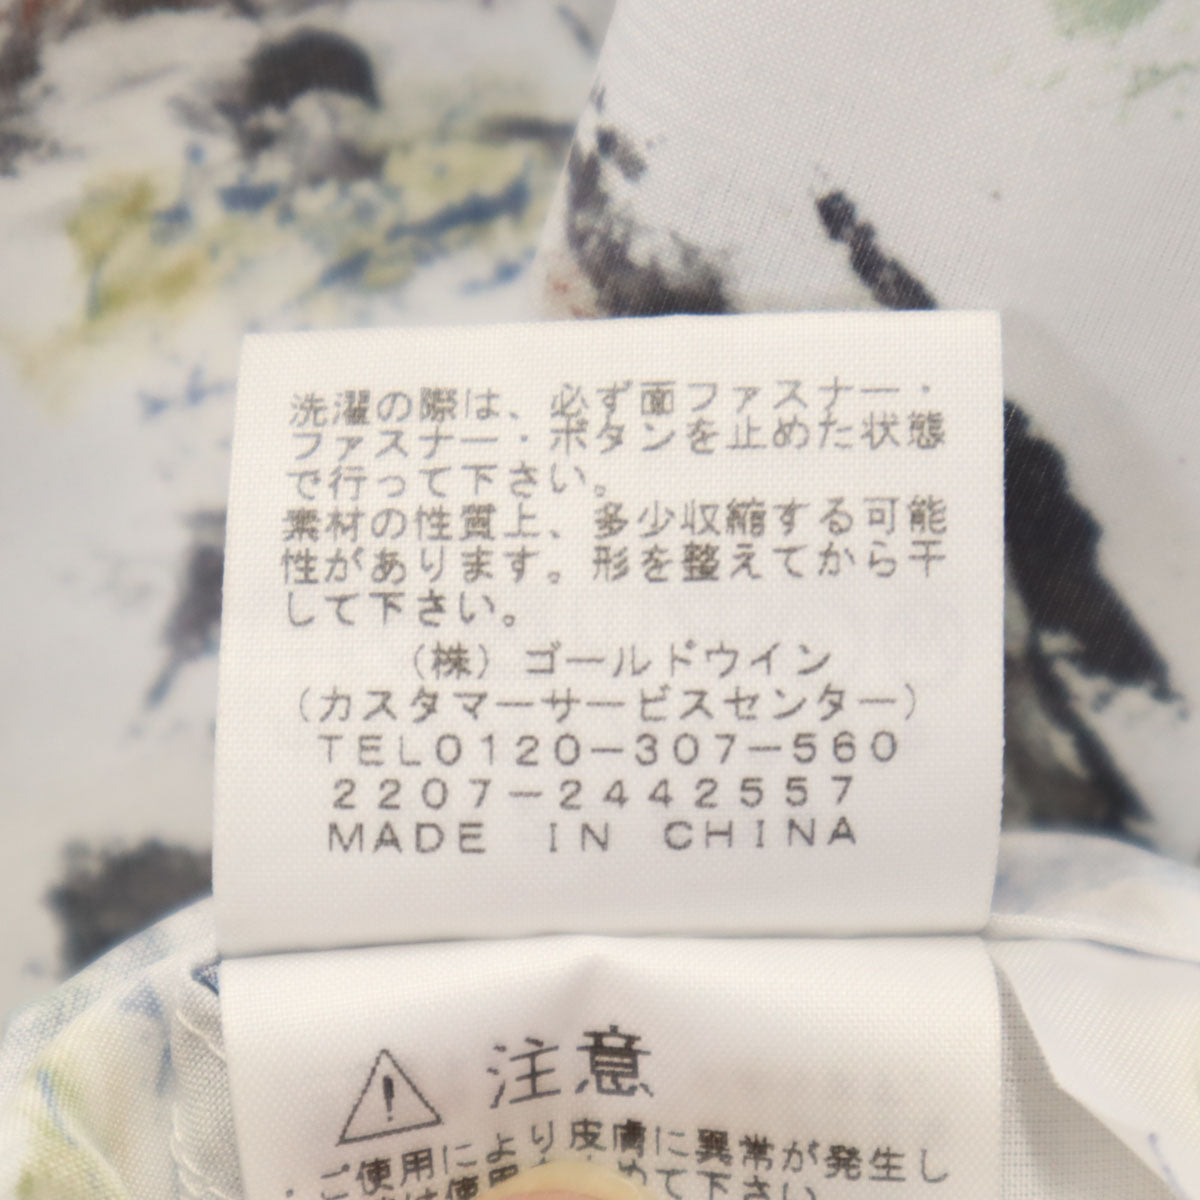 洗濯の際は、必ず面ファスナー・
ファスナー・ボタンを止めた状態
で行って下さい。
素材の性質上、多少収縮する可能
性があります。形を整えてから干
して下さい。
(株)ゴールドウイン
(カスタマーサービスセンター)
TEL0120-307-560
2207-2442557
MADE IN CHINA
注意
ご使用により皮膚に異常が発生し
て下さい